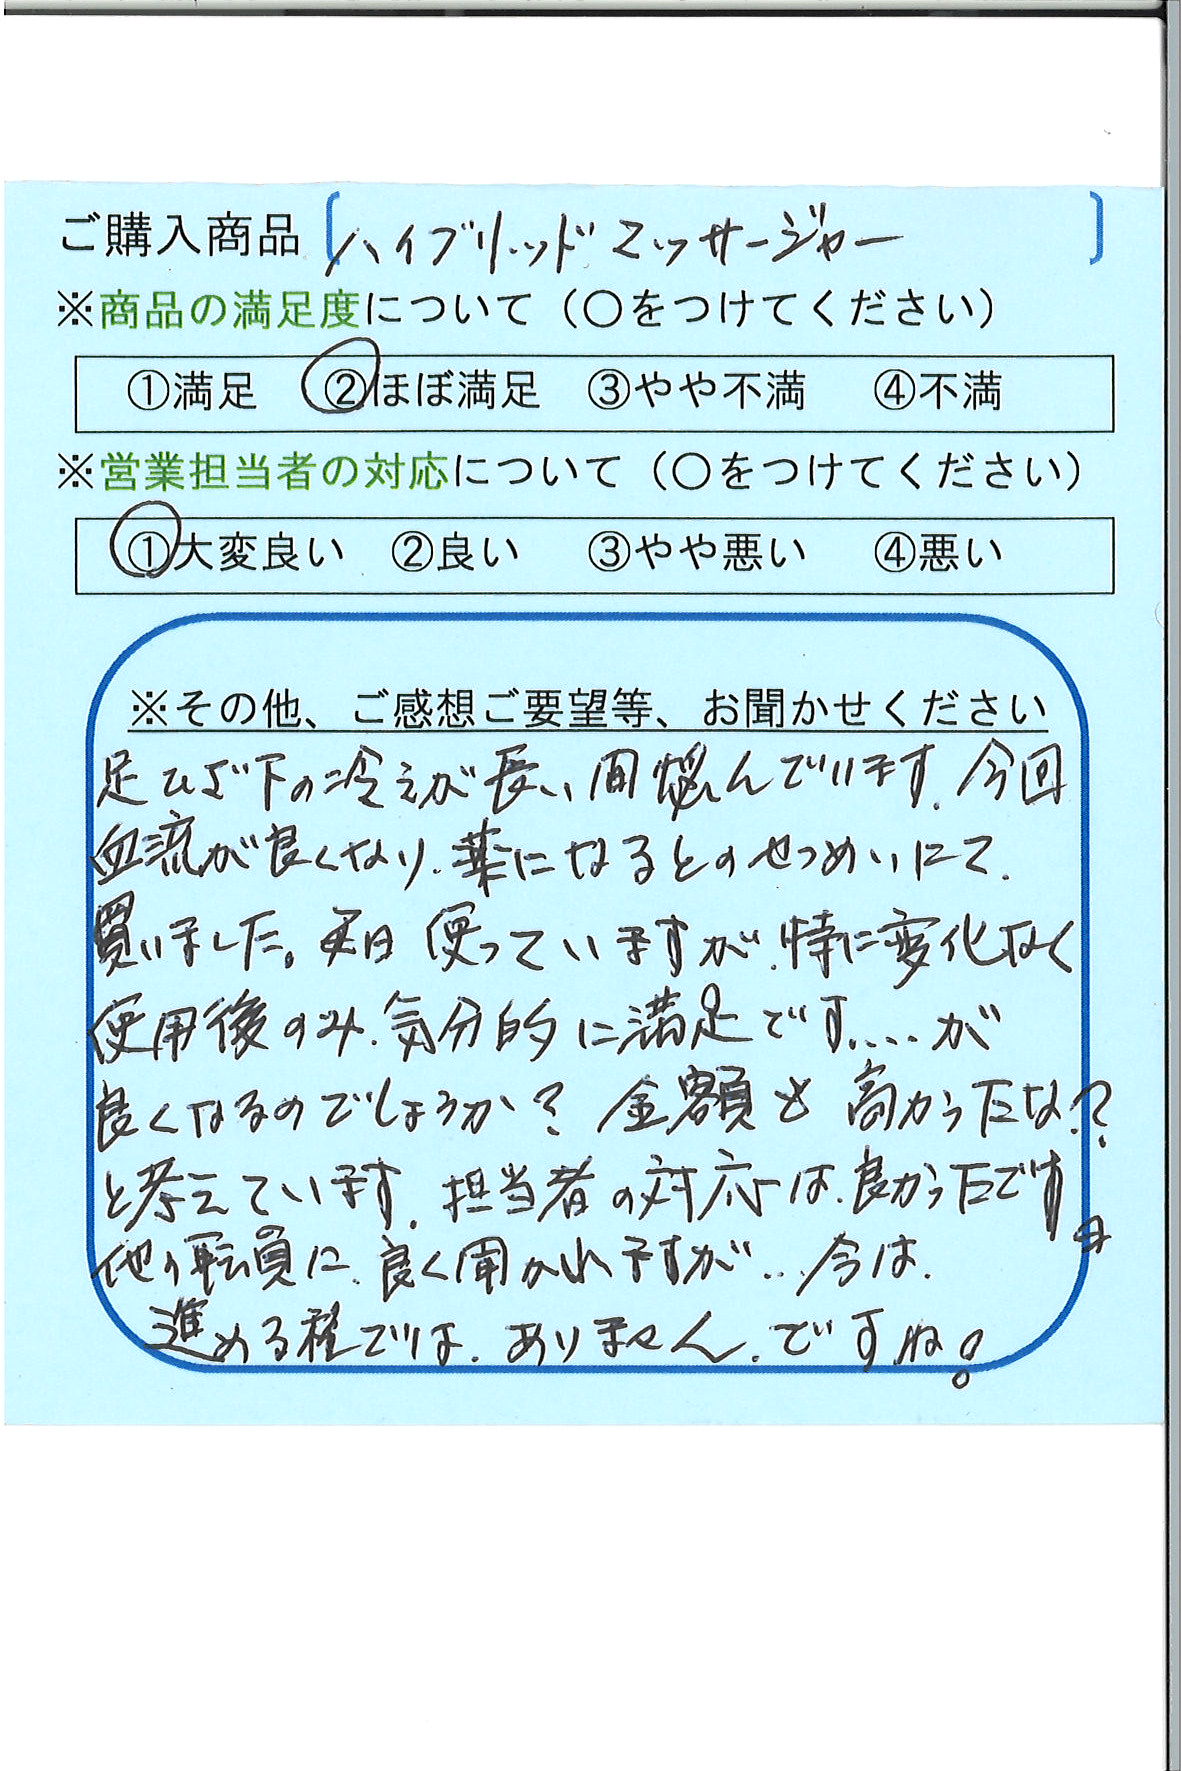 ご購入商品〔ハイブリッドマッサージャー〕
※商品の満足度について（○をつけてください）
①満足 ②ほぼ満足 ③やや不満 ④不満
※営業担当者の対応について（○をつけてください）
①大変良い ②良い ③やや悪い ④悪い
※その他、ご感想ご要望等、お聞かせください
足ひざ下の冷えが長い間悩んでいます.今回
血流が良くなり.薬になるとのせつめいにて.
買いました。毎日使っていますが.特に変化なく
使用後のみ.気分的に満足です....が
良くなるのでしょうか?金額も高かったな?
と考えています.担当者の対応は.良かったです
他の職員に.良く聞かれますが...今は.
進める程では.ありません.ですね!